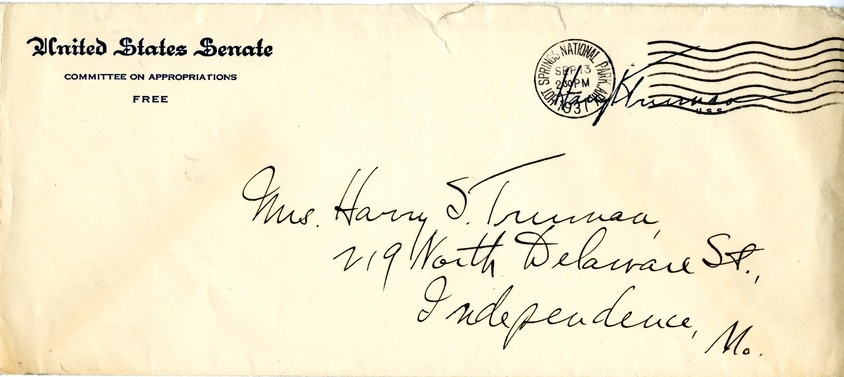 United States Senate
COMMITTEE ON APPROPRIATIONS
FREE
HOT SPRINGS NATIONAL PARK, ARK.
SEP 13
2 30 PM
1937
Harry S Truman
U.S.S.
Mrs. Harry S. Truman,
219 North Delaware St.,
Independence,
Mo.